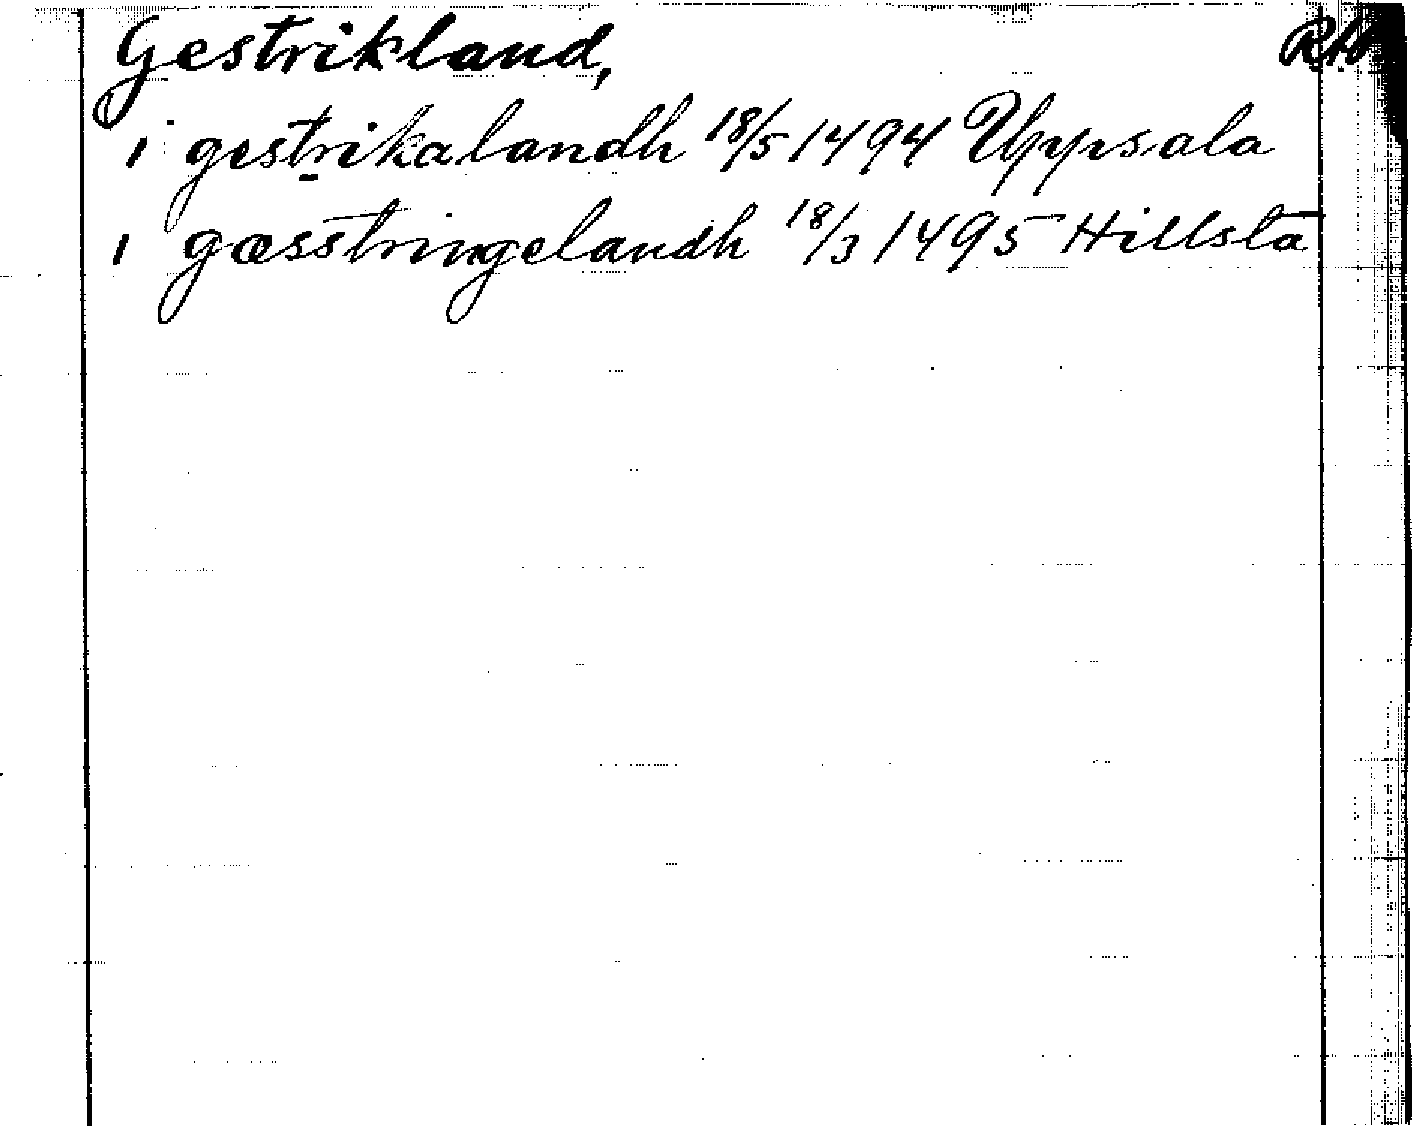 Gestrikland, RAO
i gestrikalandh 18/5 1494 Uppsala
i gæsstringelandh 18/3 1495 Hillsta